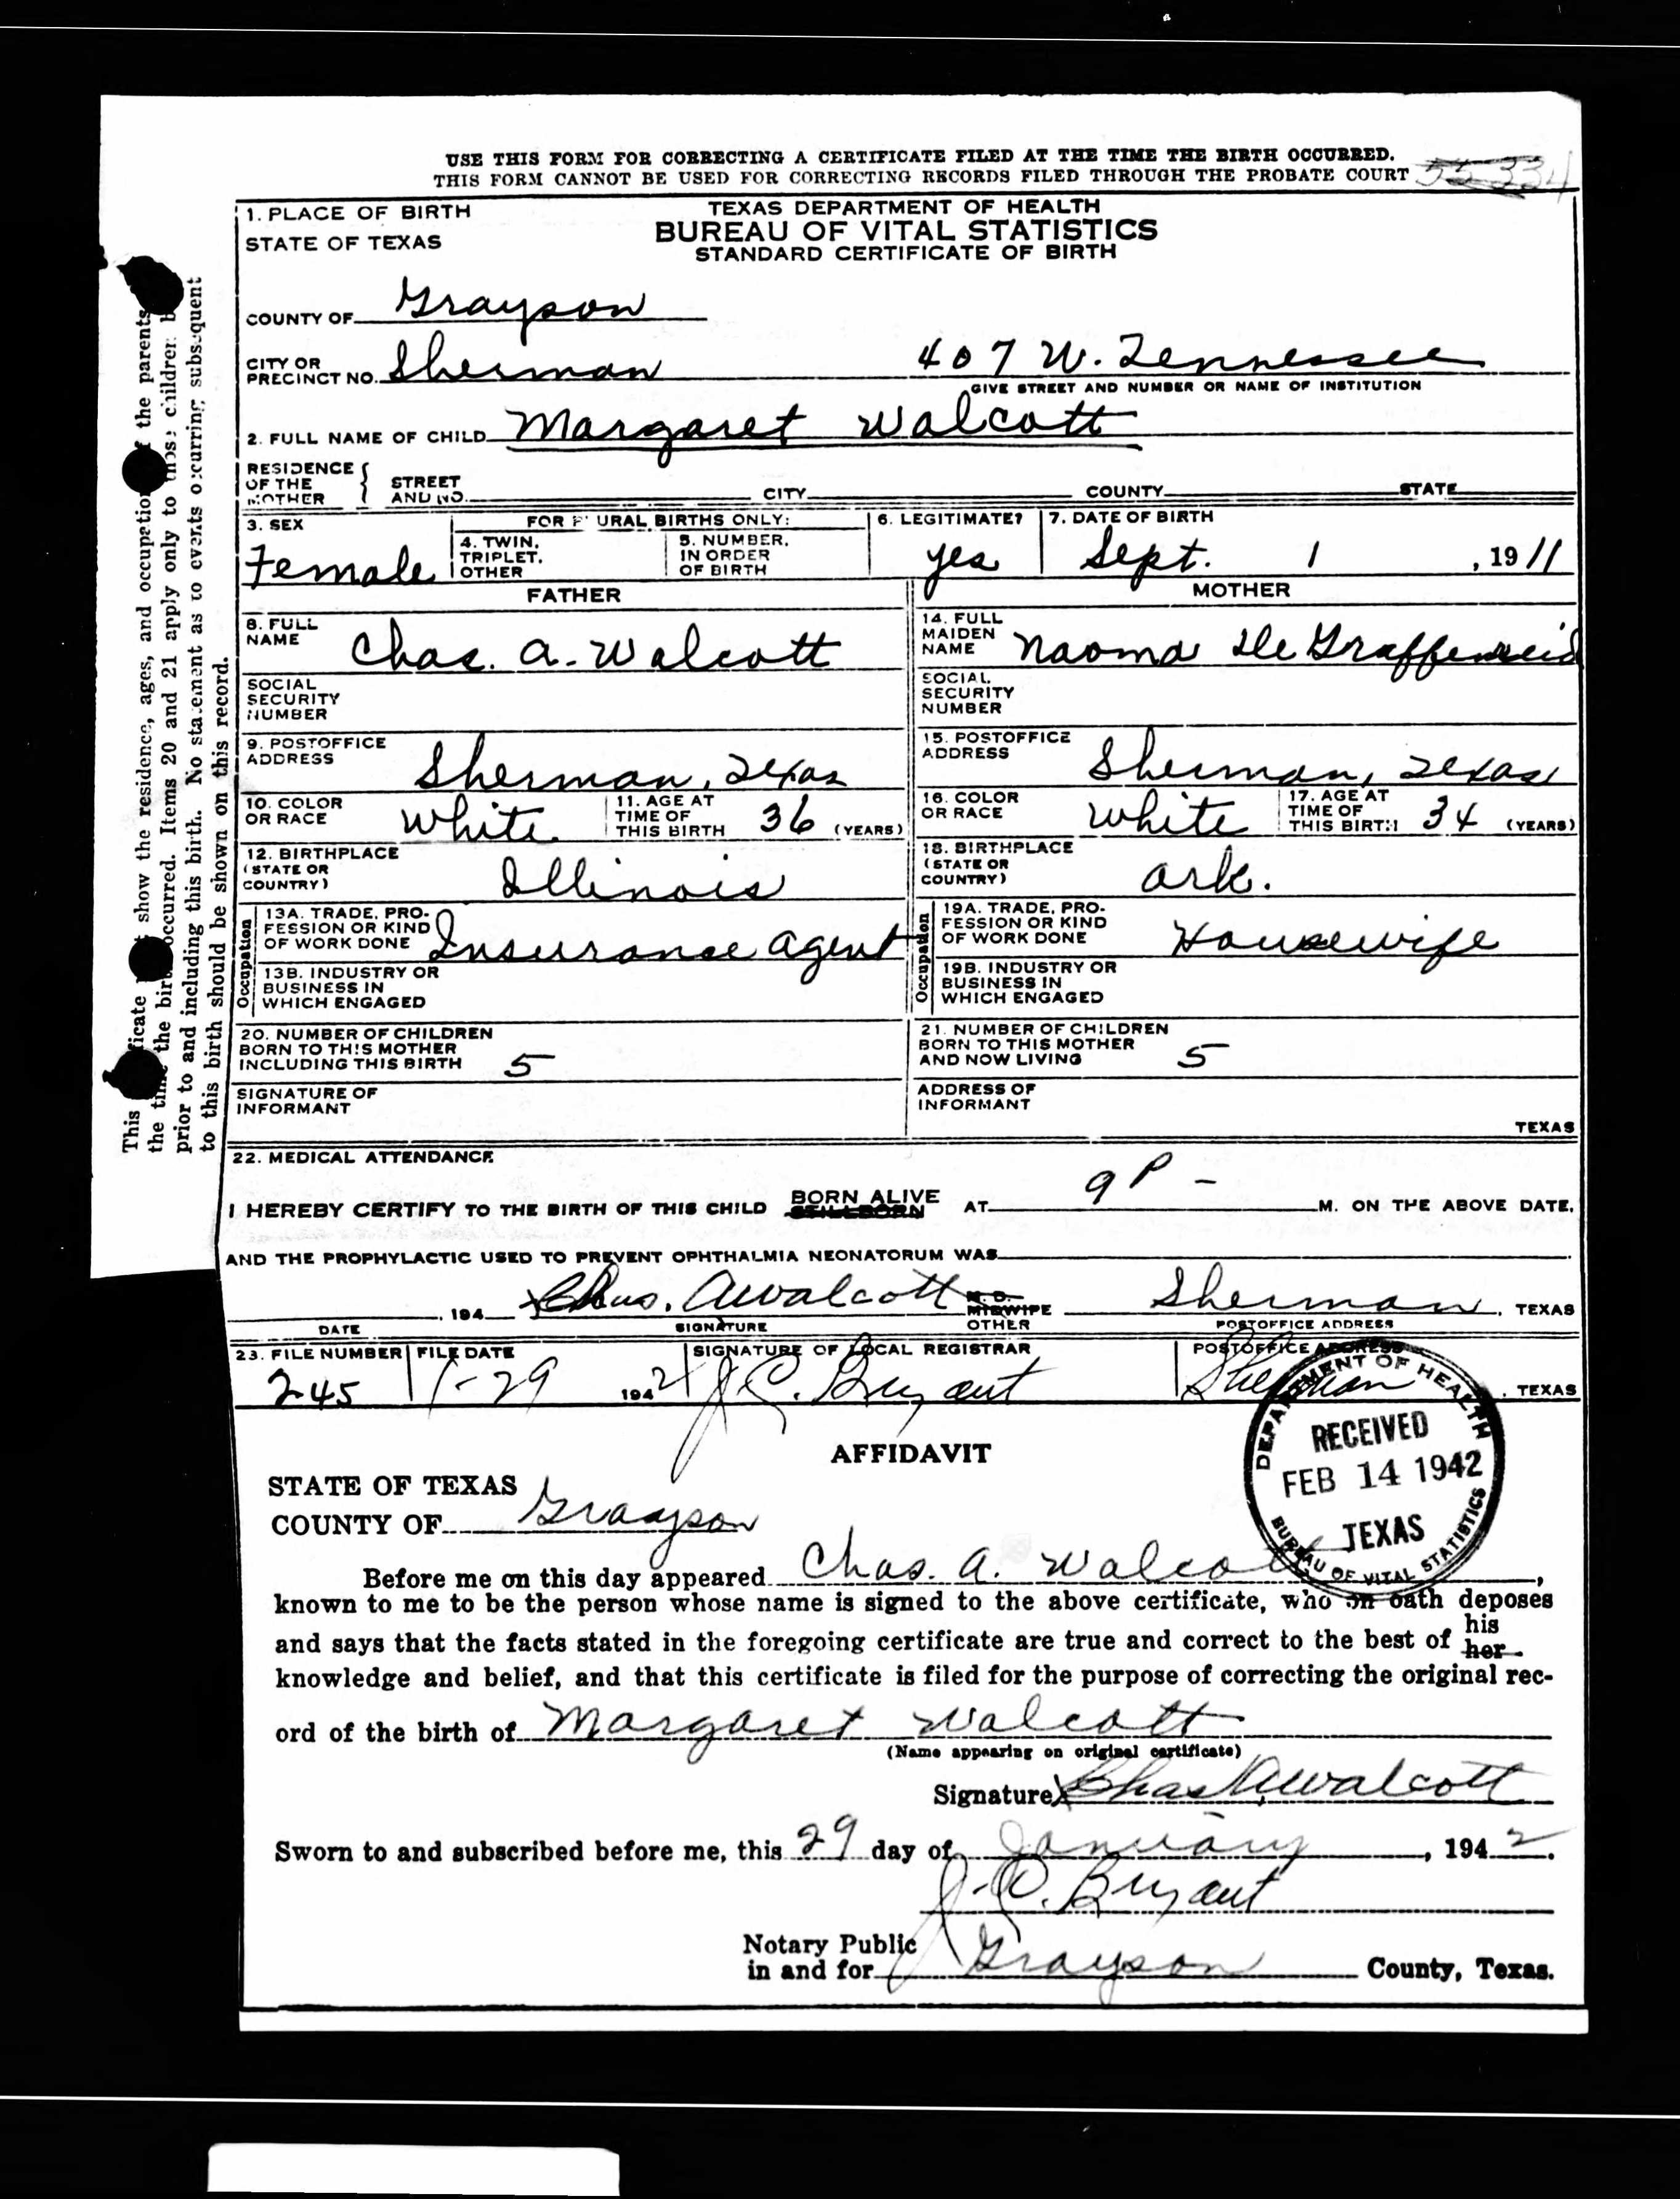 USE THIS FORM FOR CORRECTING A CERTIFICATE FILED AT THE TIME THE BIRTH OCCURRED.
THIS FORM CANNOT BE USED FOR CORRECTING RECORDS FILED THROUGH THE PROBATE COURT
1. PLACE OF BIRTH
STATE OF TEXAS
TEXAS DEPARTMENT OF HEALTH
BUREAU OF VITAL STATISTICS
STANDARD CERTIFICATE OF BIRTH
COUNTY OF Grayson
CITY OR PRECINCT NO. Sherman 407 W. Tennessee
GIVE STREET AND NUMBER OR NAME OF INSTITUTION
2. FULL NAME OF CHILD Margaret Walcott
RESIDENCE OF THE MOTHER { STREET AND NO. CITY COUNTY STATE
3. SEX Female
FOR PLURAL BIRTHS ONLY:
4. TWIN, TRIPLET, OTHER
5. NUMBER, IN ORDER OF BIRTH
6. LEGITIMATE? yes
7. DATE OF BIRTH Sept. 1, 1911
FATHER
8. FULL NAME Chas. A. Walcott
SOCIAL SECURITY NUMBER
9. POSTOFFICE ADDRESS Sherman, Texas
10. COLOR OR RACE White
11. AGE AT TIME OF THIS BIRTH 36 (YEARS)
12. BIRTHPLACE (STATE OR COUNTRY) Illinois
Occupation
13A. TRADE, PROFESSION OR KIND OF WORK DONE Insurance agent
13B. INDUSTRY OR BUSINESS IN WHICH ENGAGED
MOTHER
14. FULL MAIDEN NAME Naoma De Graffenreid
SOCIAL SECURITY NUMBER
15. POSTOFFICE ADDRESS Sherman, Texas
16. COLOR OR RACE White
17. AGE AT TIME OF THIS BIRTH 34 (YEARS)
18. BIRTHPLACE (STATE OR COUNTRY) Ark.
Occupation
19A. TRADE, PROFESSION OR KIND OF WORK DONE Housewife
19B. INDUSTRY OR BUSINESS IN WHICH ENGAGED
20. NUMBER OF CHILDREN BORN TO THIS MOTHER INCLUDING THIS BIRTH 5
21. NUMBER OF CHILDREN BORN TO THIS MOTHER AND NOW LIVING 5
SIGNATURE OF INFORMANT
ADDRESS OF INFORMANT TEXAS
22. MEDICAL ATTENDANCE
I HEREBY CERTIFY TO THE BIRTH OF THIS CHILD BORN ALIVE STILLBORN AT 9 P - M. ON THE ABOVE DATE,
AND THE PROPHYLACTIC USED TO PREVENT OPHTHALMIA NEONATORUM WAS
, 194 x Chas. A Walcott M. D. MIDWIFE OTHER Sherman, TEXAS
DATE SIGNATURE POSTOFFICE ADDRESS
23. FILE NUMBER 245
FILE DATE 1-29 1942
SIGNATURE OF LOCAL REGISTRAR J. C. Bryant
POSTOFFICE ADDRESS Sherman, TEXAS
DEPARTMENT OF HEALTH
RECEIVED
FEB 14 1942
TEXAS
BUREAU OF VITAL STATISTICS
AFFIDAVIT
STATE OF TEXAS
COUNTY OF Grayson
Before me on this day appeared Chas. A. Walcott,
known to me to be the person whose name is signed to the above certificate, who on oath deposes
and says that the facts stated in the foregoing certificate are true and correct to the best of his her
knowledge and belief, and that this certificate is filed for the purpose of correcting the original rec-
ord of the birth of Margaret Walcott
(Name appearing on original certificate)
Signature x Chas A Walcott
Sworn to and subscribed before me, this 29 day of January, 1942.
J. C. Bryant
Notary Public
in and for Grayson County, Texas.
This show the residence, ages, and occupation of the parents
the time the birth occurred. Items 20 and 21 apply only to those children
prior to and including this birth. No statement as to events occurring subsequent
to this birth should be shown on this record.